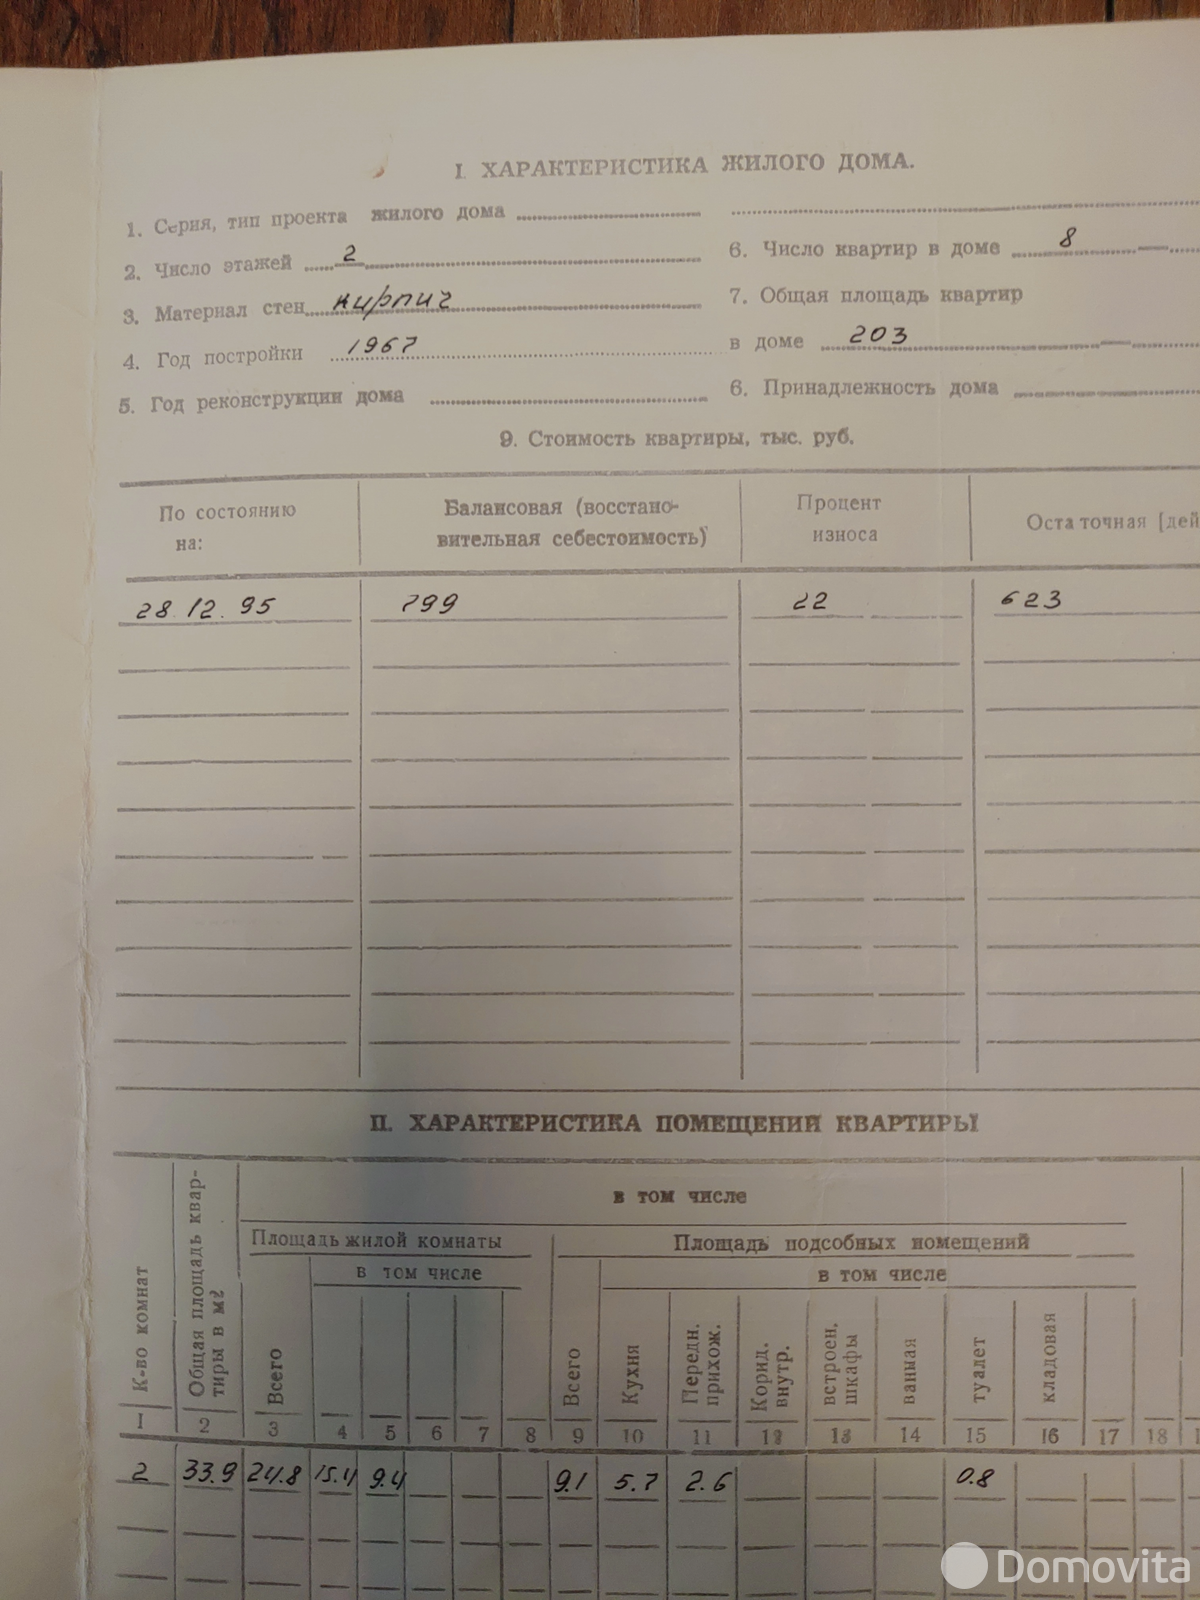 I. ХАРАКТЕРИСТИКА ЖИЛОГО ДОМА.
1. Серия, тип проекта жилого дома
2. Число этажей 2
3. Материал стен кирпич
4. Год постройки 1967
5. Год реконструкции дома
6. Число квартир в доме 8
7. Общая площадь квартир
в доме 203
6. Принадлежность дома
9. Стоимость квартиры, тыс. руб.
По состоянию на:
Балансовая (восстано-
вительная себестоимость)
Процент износа
Остаточная [дей
28.12.95 799 22 623
II. ХАРАКТЕРИСТИКА ПОМЕЩЕНИЙ КВАРТИРЫ
К-во комнат
Общая площадь квар-
тиры в м2
в том числе
Площадь жилой комнаты
Площадь подсобных помещений
в том числе
в том числе
Всего
Всего
Кухня
Передн. прихож.
Корид. внутр.
встроен. шкафы
ванная
туалет
кладовая
1 2 3 4 5 6 7 8 9 10 11 12 13 14 15 16 17 18
2 33.9 24.8 15.4 9.4 9.1 5.7 2.6 0.8
Domovita